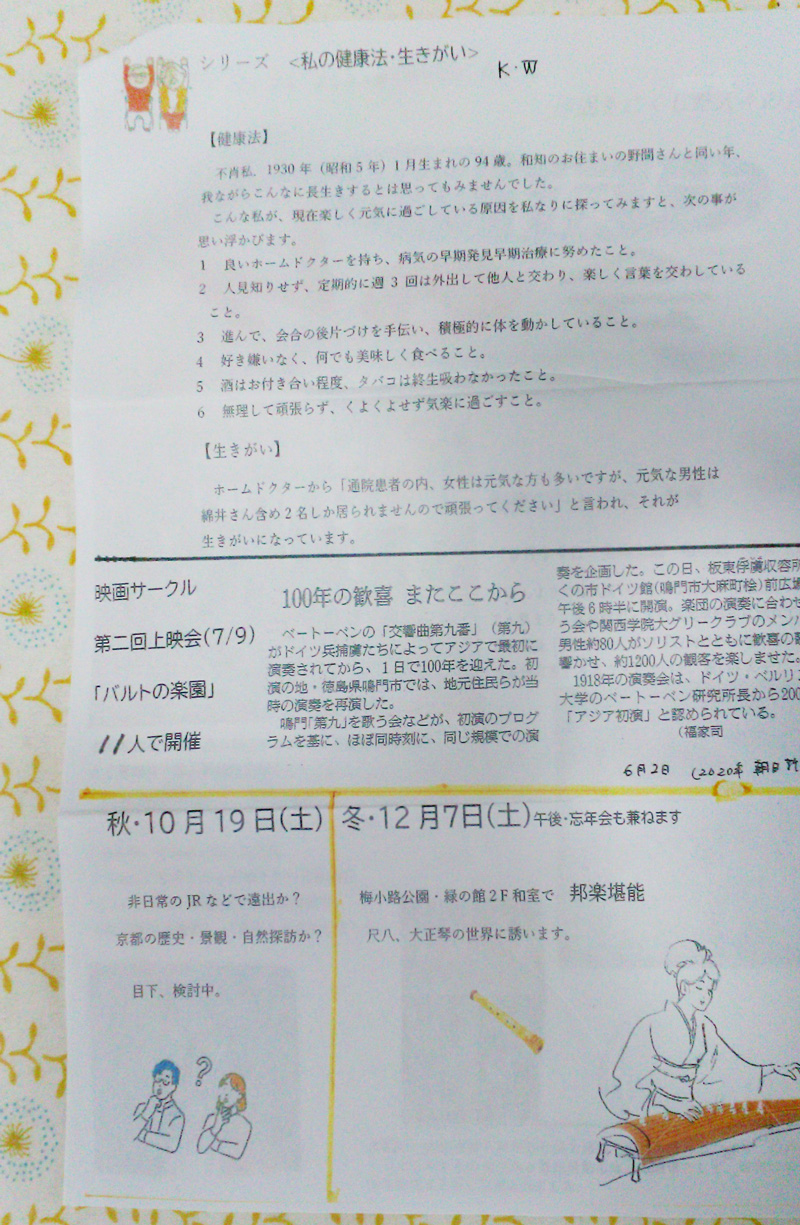 シリーズ <私の健康法・生きがい>
K・W
【健康法】
不肖私、1930年(昭和5年)1月生まれの94歳。和知のお住まいの野間さんと同い年、
我ながらこんなに長生きするとは思ってもみませんでした。
こんな私が、現在楽しく元気に過ごしている原因を私なりに探ってみますと、次の事が
思い浮かびます。
1 良いホームドクターを持ち、病気の早期発見早期治療に努めたこと。
2 人見知りせず、定期的に週3回は外出して他人と交わり、楽しく言葉を交わしている
こと。
3 進んで、会合の後片づけを手伝い、積極的に体を動かしていること。
4 好き嫌いなく、何でも美味しく食べること。
5 酒はお付き合い程度、タバコは終生吸わなかったこと。
6 無理して頑張らず、くよくよせず気楽に過ごすこと。
【生きがい】
ホームドクターから「通院患者の内、女性は元気な方も多いですが、元気な男性は
綿井さん含め2名しか居られませんので頑張ってください」と言われ、それが
生きがいになっています。
映画サークル
第二回上映会(7/9)
「バルトの楽園」
11人で開催
100年の歓喜 またここから
ベートーベンの「交響曲第九番」(第九)
がドイツ兵捕虜たちによってアジアで最初に
演奏されてから、1日で100年を迎えた。初
演の地・徳島県鳴門市では、地元住民らが当
時の演奏を再演した。
鳴門「第九」を歌う会などが、初演のプログ
ラムを基に、ほぼ同時刻に、同じ規模での演
奏を企画した。この日、板東俘虜収容所
くの市ドイツ館(鳴門市大麻町桧)前広場
午後6時半に開演。楽団の演奏に合わせ
う会や関西学院大グリークラブのメンバ
男性約80人がソリストとともに歓喜の
響かせ、約1200人の観客を楽しませた。
1918年の演奏会は、ドイツ・ベルリン
大学のベートーベン研究所長から200
「アジア初演」と認められている。
(福家司
6月2日 (2020年 朝日
秋・10月19日(土)
非日常のJRなどで遠出か?
京都の歴史・景観・自然探訪か?
目下、検討中。
?
冬・12月7日(土)午後・忘年会も兼ねます
梅小路公園・緑の館2F和室で 邦楽堪能
尺八、大正琴の世界に誘います。